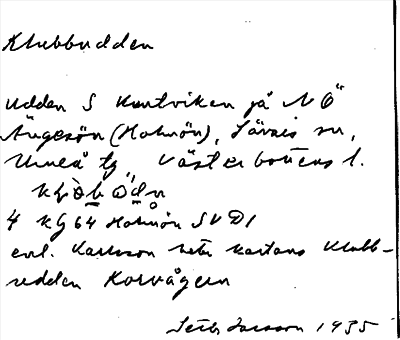 Klubbudden
Udden S Kontviken på NÖ
Ängesön (Holmön), Sävars sn,
Umeå tg Västerbottens l.
4 kg 64 Holmön SV D1
enl. Karlsson heter kartans Klubb-
udden Korvågen
1935